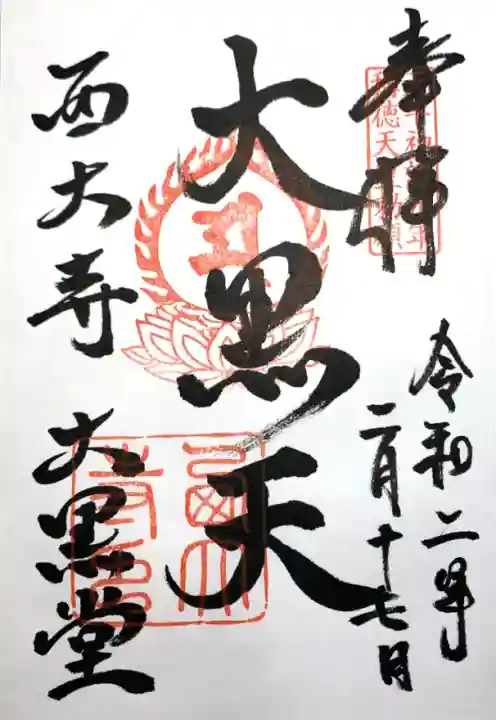 奉拝
令和二年
二月十七日
大黒天
西大寺
大黒堂